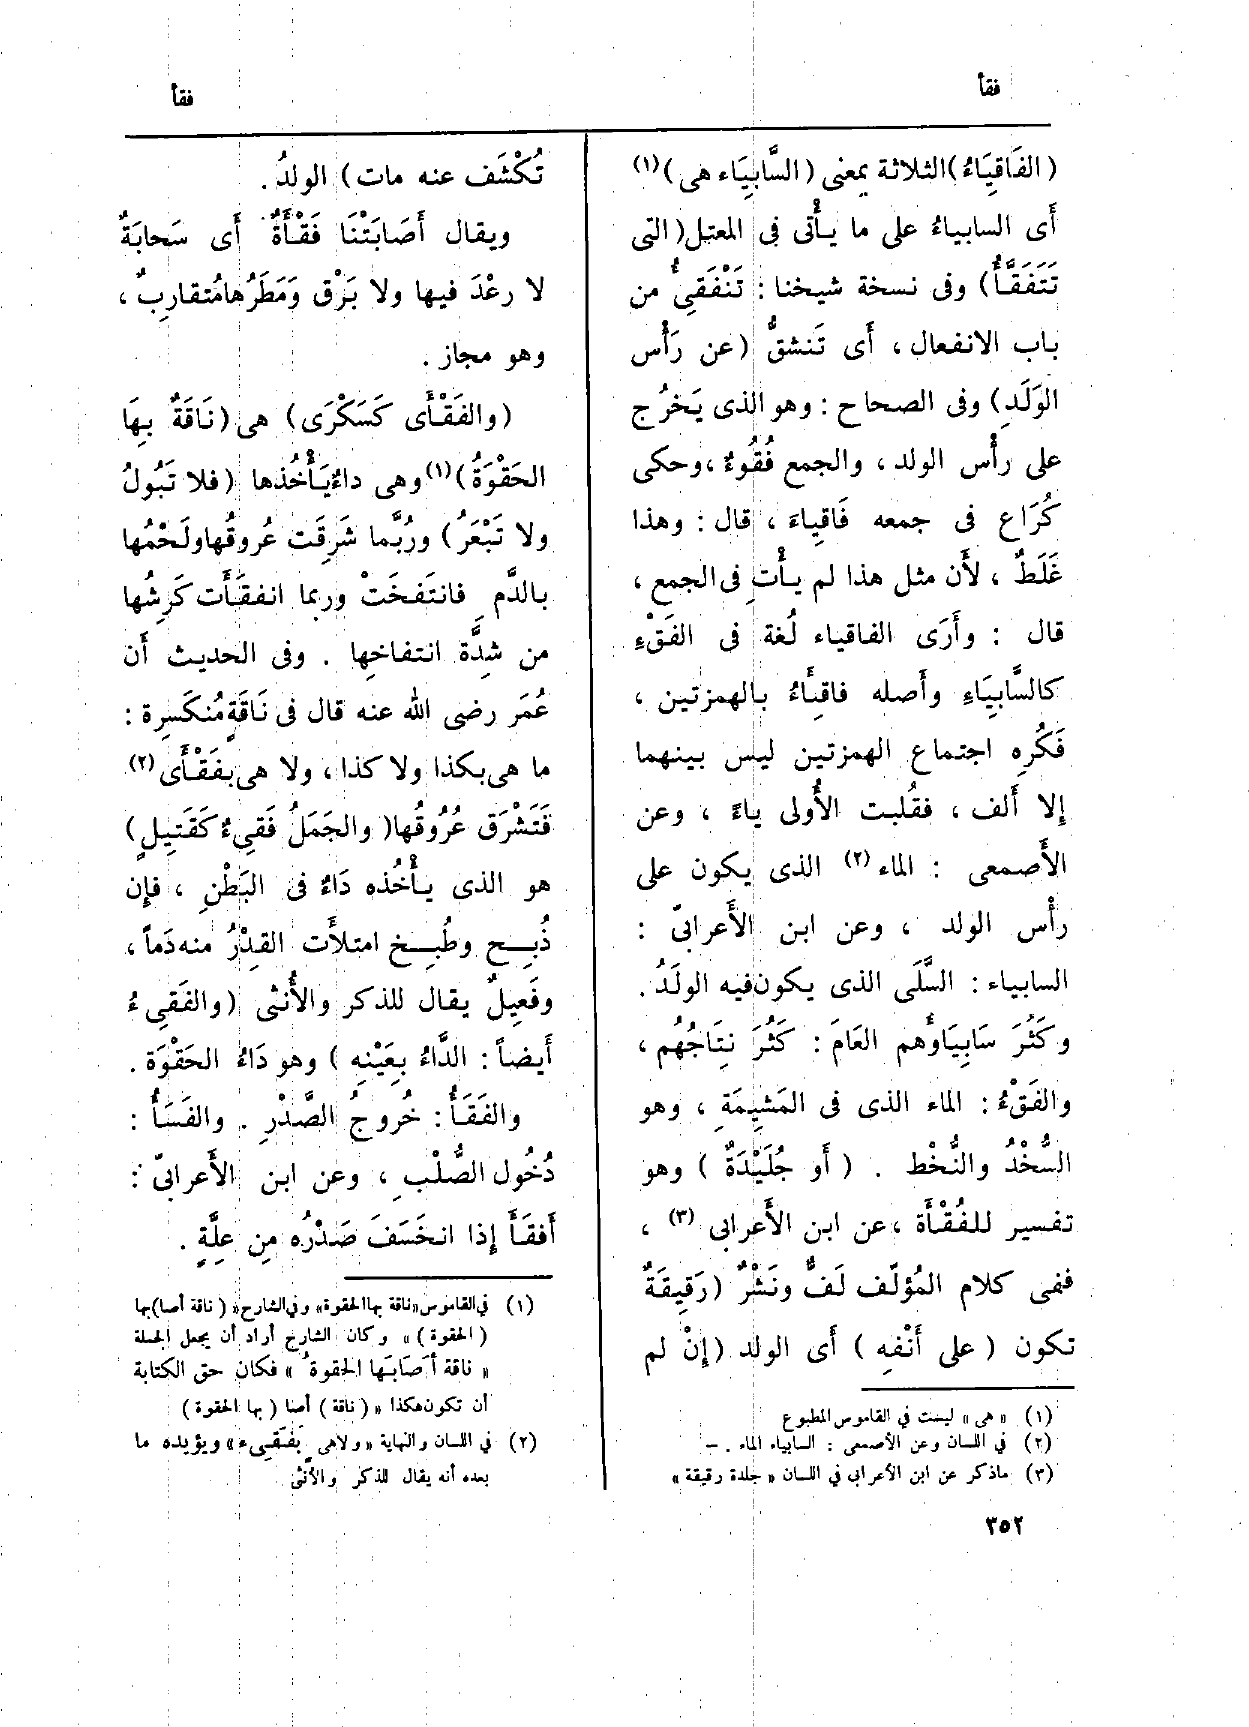 فقأ
فقأ
(الفَاقِيَاءُ) الثلاثة بمعنى (السَّابِيَاء هى)(١)
أَى السابياءُ على ما يأْتى فى المعتل (التى
تَتَفَقَّأُ) وفى نسخة شيخنا : تَنْفَقِىُ من
باب الانفعال ، أَى تَنشقُّ (عن رَأْس
الوَلَدِ) وفى الصحاح : وهو الذى يَخرُج
على رأْس الولد ، والجمع فُقُوءٌ ، وحكى
كُرَاع فى جمعه فَاقِياءَ ، قال : وهذا
غَلَطٌ ، لأَن مثل هذا لم يأْتِ فى الجمع ،
قال : وأَرَى الفاقياء لُغة فى الفَقْءِ
كالسَّابِيَاءِ وأَصله فاقِئَاءُ بالهمزتين ،
فَكُرِه اجتماع الهمزتين ليس بينهما
إلا أَلف ، فقُلبت الأُولى ياءً ، وعن
الأَصمعى : الماء (٢) الذى يكون على
رأْس الولد ، وعن ابن الأَعرابىّ :
السابياء : السَّلَى الذى يكون فيه الولَدُ .
وكَثُرَ سَابِيَاؤُهم العَامَ : كَثُرَ نِتَاجُهُم ،
والفَقْءُ : الماء الذى فى المَشِيمَةِ ، وهو
السُّخْدُ والنُّخْط . (أو جُلَيْدَةٌ) وهو
تفسير للفُقْأَة ، عن ابن الأَعرابى (٣) ،
ففى كلام المُؤلّف لَفٌّ ونَشْرٌ (رَقِيقَةٌ
تكون (على أَنْفِهِ) أَى الولد (إنْ لم
(١) « هى » ليست في القاموس المطبوع
(٢) في اللسان وعن الأصمعى : السابياء الماء . –
(٣) ماذكر عن ابن الأعرابي في اللسان « جلدة رقيقة »
تُكْشَف عنه مات) الولدُ .
ويقال أَصَابَتْنَا فَقْأَةٌ أَى سَحابَةٌ
لا رعْدَ فيها ولا بَرْق وَمَطَرُها مُتقارِبٌ ،
وهو مجاز .
(والفَقْأَى كَسَكْرَى) هى (نَاقَةٌ بِهَا
الحَقْوَةُ)(١) وهى داءٌ يَأْخُذها (فلا تَبُولُ
ولا تَبْعَرُ) ورُبَّما شَرِقَت عُروقُها ولَحْمُها
بالدَّمِ فانتَفخَتْ وربما انفقَأَت كَرِشُها
من شِدَّة انتفاخِها . وفى الحديث أَن
عُمَر رضى الله عنه قال فى نَاقَةٍ مُنكَسِرة :
ما هى بكذا ولا كذا ، ولا هى بفَقْأَى (٢)
فَتَشْرَق عُرُوقُها (والجَمَلُ فَقِىءٌ كَقَتِيلٍ)
هو الذى يأْخُذه دَاءٌ فى البَطْنِ ، فإن
ذُبِح وطُبِخ امتلأَت القِدْرُ منه دَماً ،
وفَعِيلٌ يقال للذكر والأُنثى (والفَقِىءُ
أَيضاً : الدَّاءُ بِعَيْنِه) وهو دَاءُ الحَقْوَة .
والفَقَأُ : خُروجُ الصَّدْرِ . والفَسَأُ :
دُخُول الصُّلْبِ ، وعن ابن الأَعرابىّ :
أَفقَأَ إذا انخَسَفَ صَدْرُه مِن عِلَّةٍ .
(١) في القاموس «ناقة بها الحقوة» وفي الشارح « (ناقة أصا)بها
(الحقوة) » وكان الشارح أراد أن يجعل الجملة
« ناقة أَصَابَتها الحقوةُ » فكان حق الكتابة
أن تكون هكذا « (ناقة) أصا (بها الحقوة)
(٢) في اللسان والنهاية « ولاهى بفَقِىء » ويؤيده ما
بعده أنه يقال للذكر والأنثى
٣٥٢